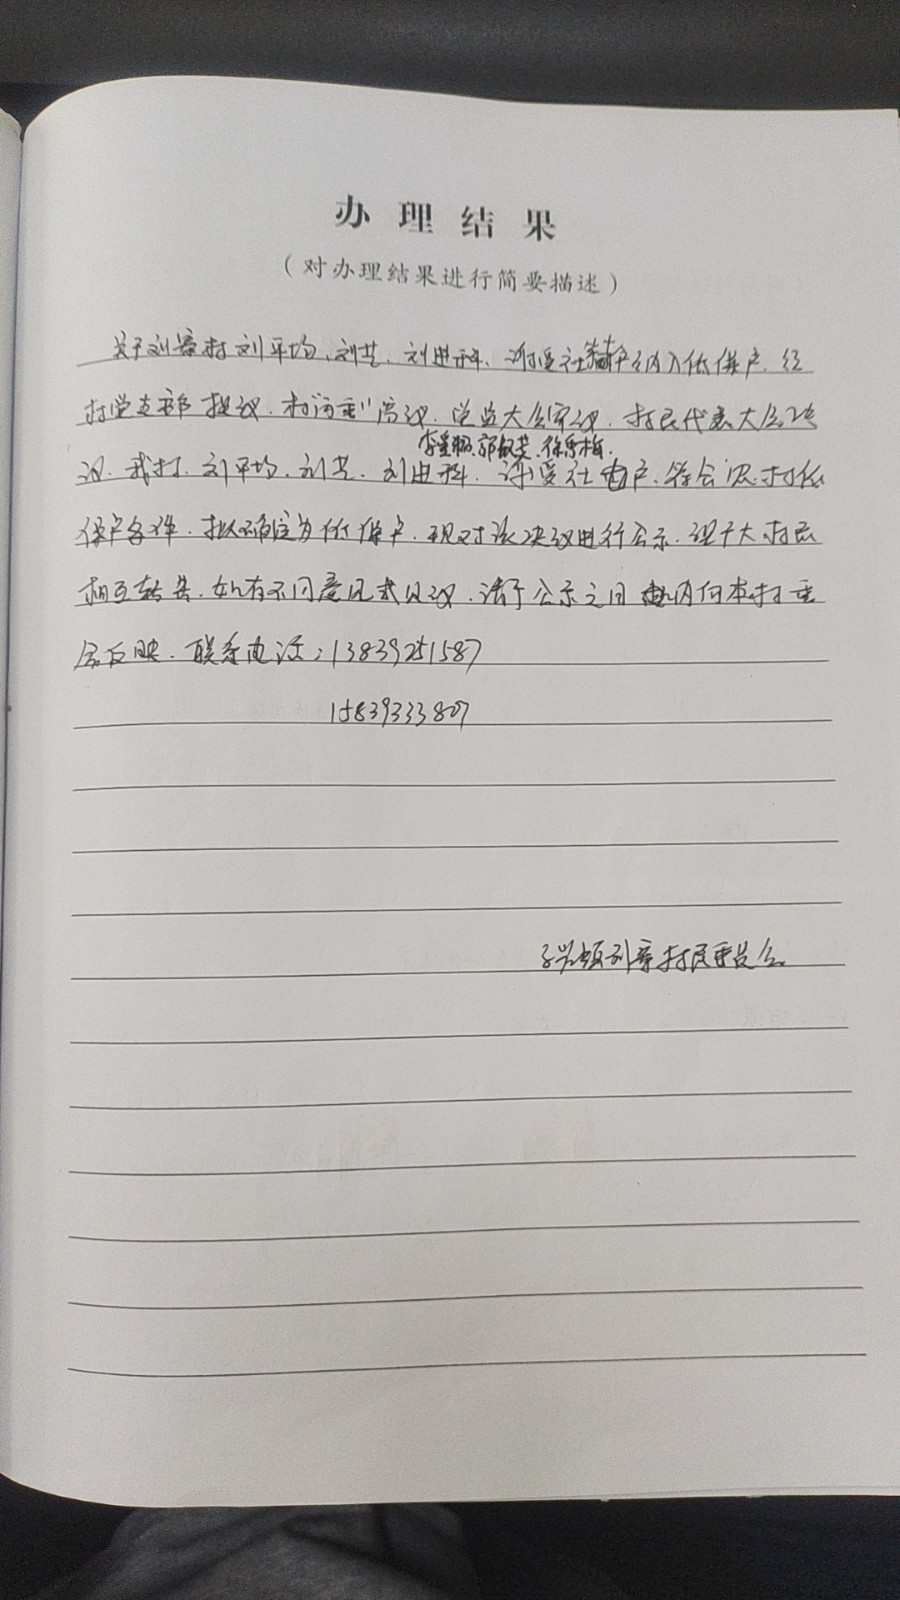 办理结果
（对办理结果进行简要描述）
关于刘寨村刘平均、刘芝、刘进科、谢爱社等户纳入低保户，经
村党支部提议，村两委商议，党员大会审议，村民代表大会决
李爱 郭敏芝、徐秀梅
议，我村刘平均、刘芝、刘进科、谢爱社 户，符合 农村低
保户条件，拟确定为低保户，现对该决议进行公示，望广大村民
相互转告，如有不同意见或见议，请于公示之日 内向本村委
会反映，联系电话：13839251587
15839333807
刘寨村民委员会